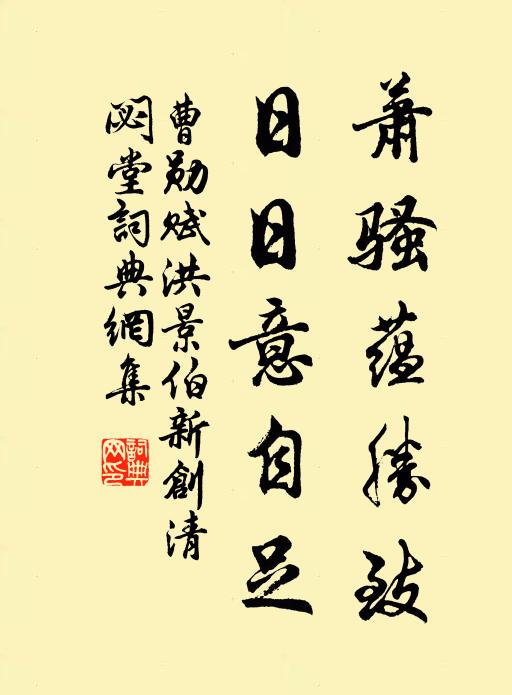 蕭騷蘊勝致
日日意自足
曹勛賦洪景伯新創清
閟堂詞典網集
詞典網印